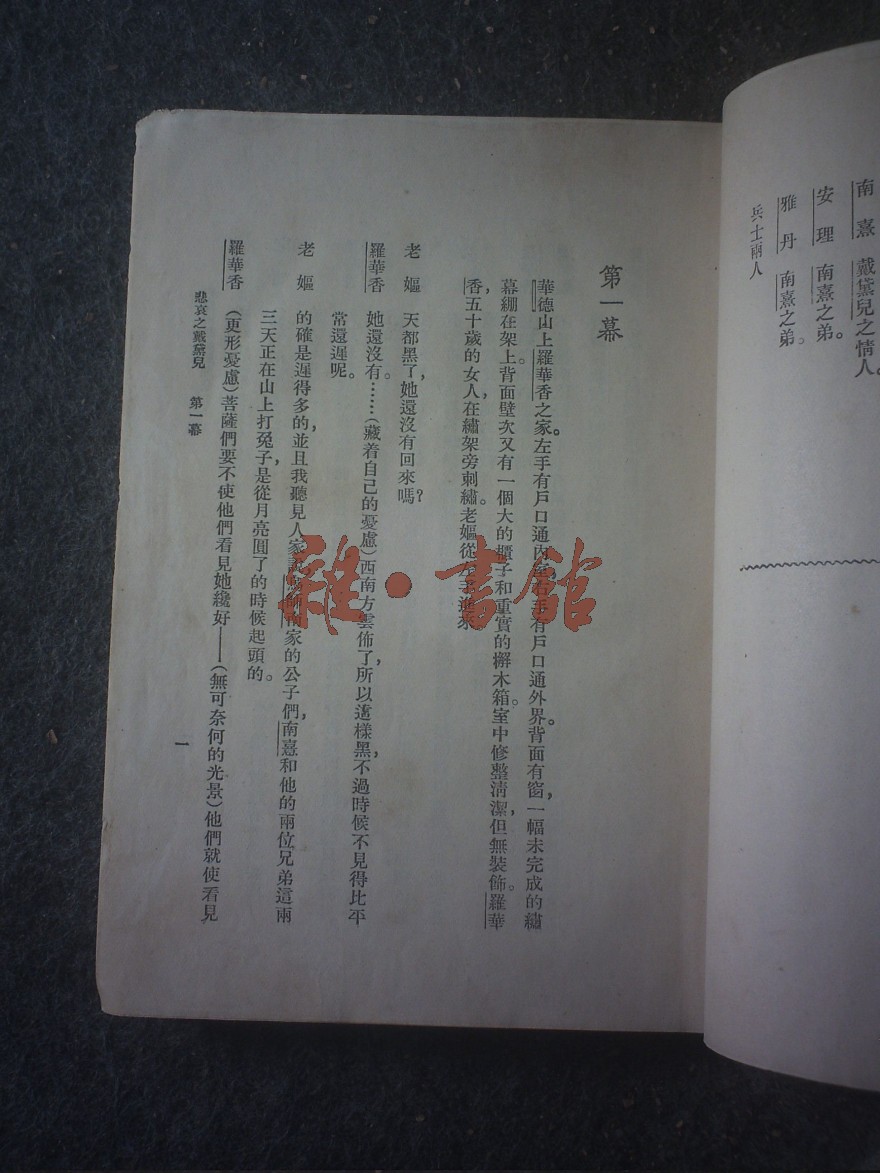 南熹 戴黛兒之情人。
安理 南熹之弟。
雅丹 南熹之弟。
兵士兩人
第一幕
華德山上羅華香之家。左手有戶口通內室右手有戶口通外界。背面有窗,一幅未完成的繡
幕綳在架上。背面壁次又有一個大的櫃子和重實的檞木箱。室中修整清潔,但無裝飾。羅華
香,五十歲的女人,在繡架旁刺繡。老嫗從左手進來。
老嫗 天都黑了,她還沒有回來嗎?
羅華香 她還沒有……(藏着自己的憂慮)西南方雲佈了,所以這樣黑,不過時候不見得比平
常還遲呢。
老嫗 的確是遲得多的,並且我聽見人家說,師南家的公子們,南熹和他的兩位兄弟這兩
三天正在山上打兔子,是從月亮圓了的時候起頭的。
羅華香 (更形憂慮)菩薩們要不使他們看見她纔好——(無可奈何的光景)他們就使看見
悲哀之戴黛兒 第一幕
一
雜·書館